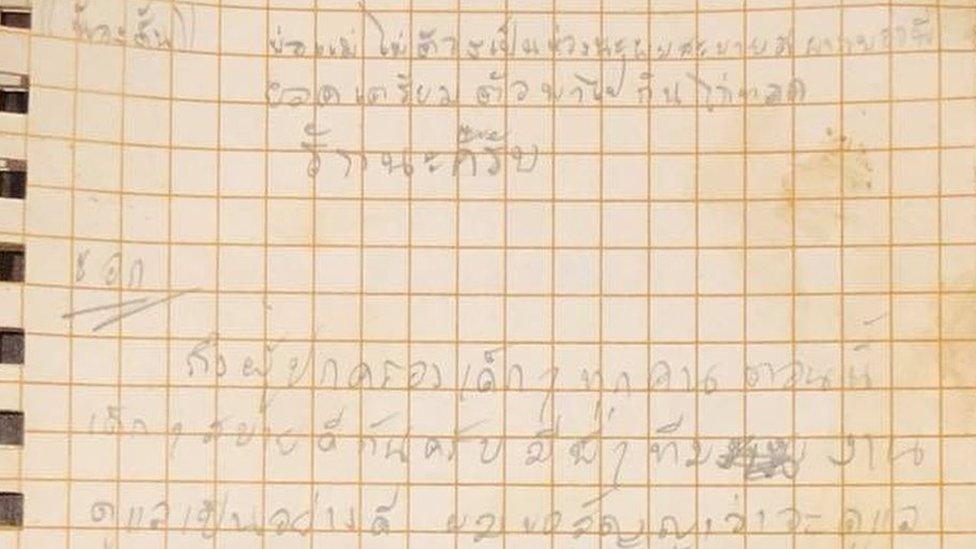 (น้องตั้น) พ่อแม่ ไม่ต้องเป็นห่วงนะผมสบายดี
เตรียมตัวพาไปกินไก่ทอด
ด้วยนะครับ
ช อีก
ถึงผู้ปกครองเด็กๆทุกคน ตอนนี้
เด็กๆสบายดีกันครับ มีน้าๆทีม งาน
ดูแลเป็นอย่างดี ผมขอสัญญาว่าจะดูแล